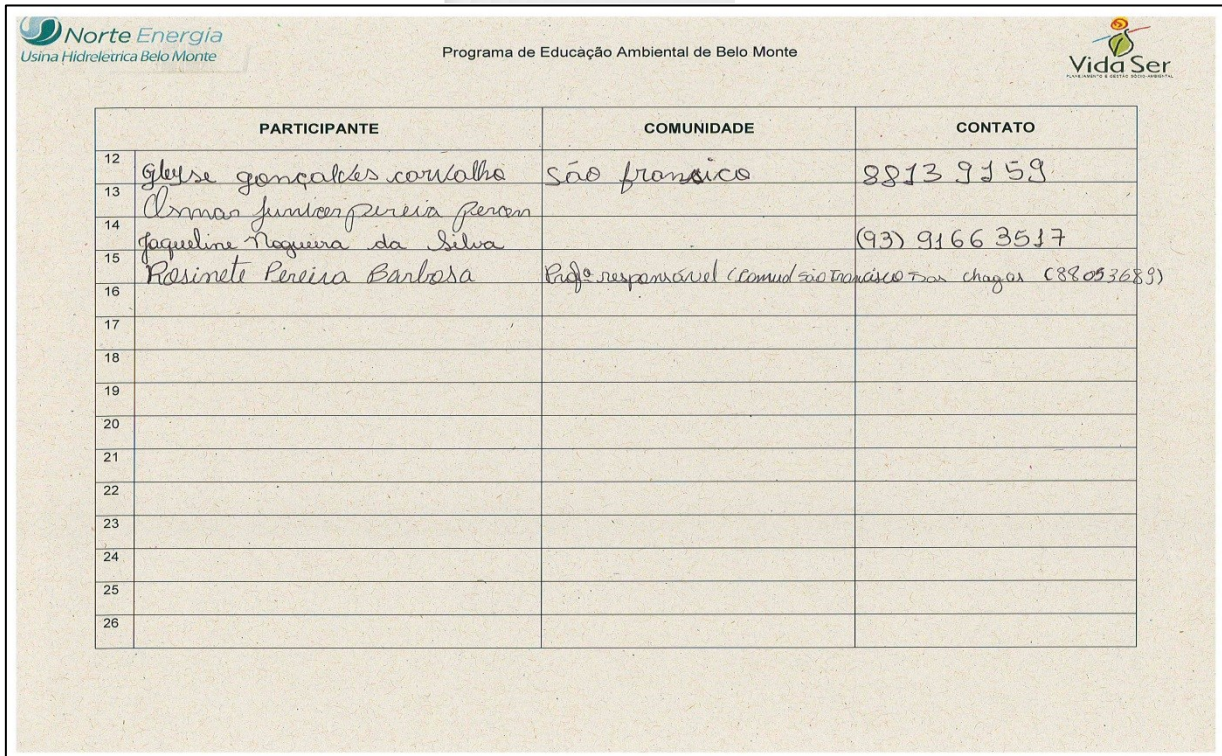 Norte Energia
Usina Hidrelétrica Belo Monte
Programa de Educação Ambiental de Belo Monte
Vida Ser
PLANEJAMENTO E GESTÃO SÓCIO-AMBIENTAL
PARTICIPANTE COMUNIDADE CONTATO
12 Gleyse gonçalves carvalho São fransico 8813 9159
13 Osmar junior pereia
14 Jaqueline Nogueira da Silva (93) 9166 3517
15 Rosinete Pereira Barbosa Profª responsável (comud São Francisco das chagas (88053689)
16
17
18
19
20
21
22
23
24
25
26